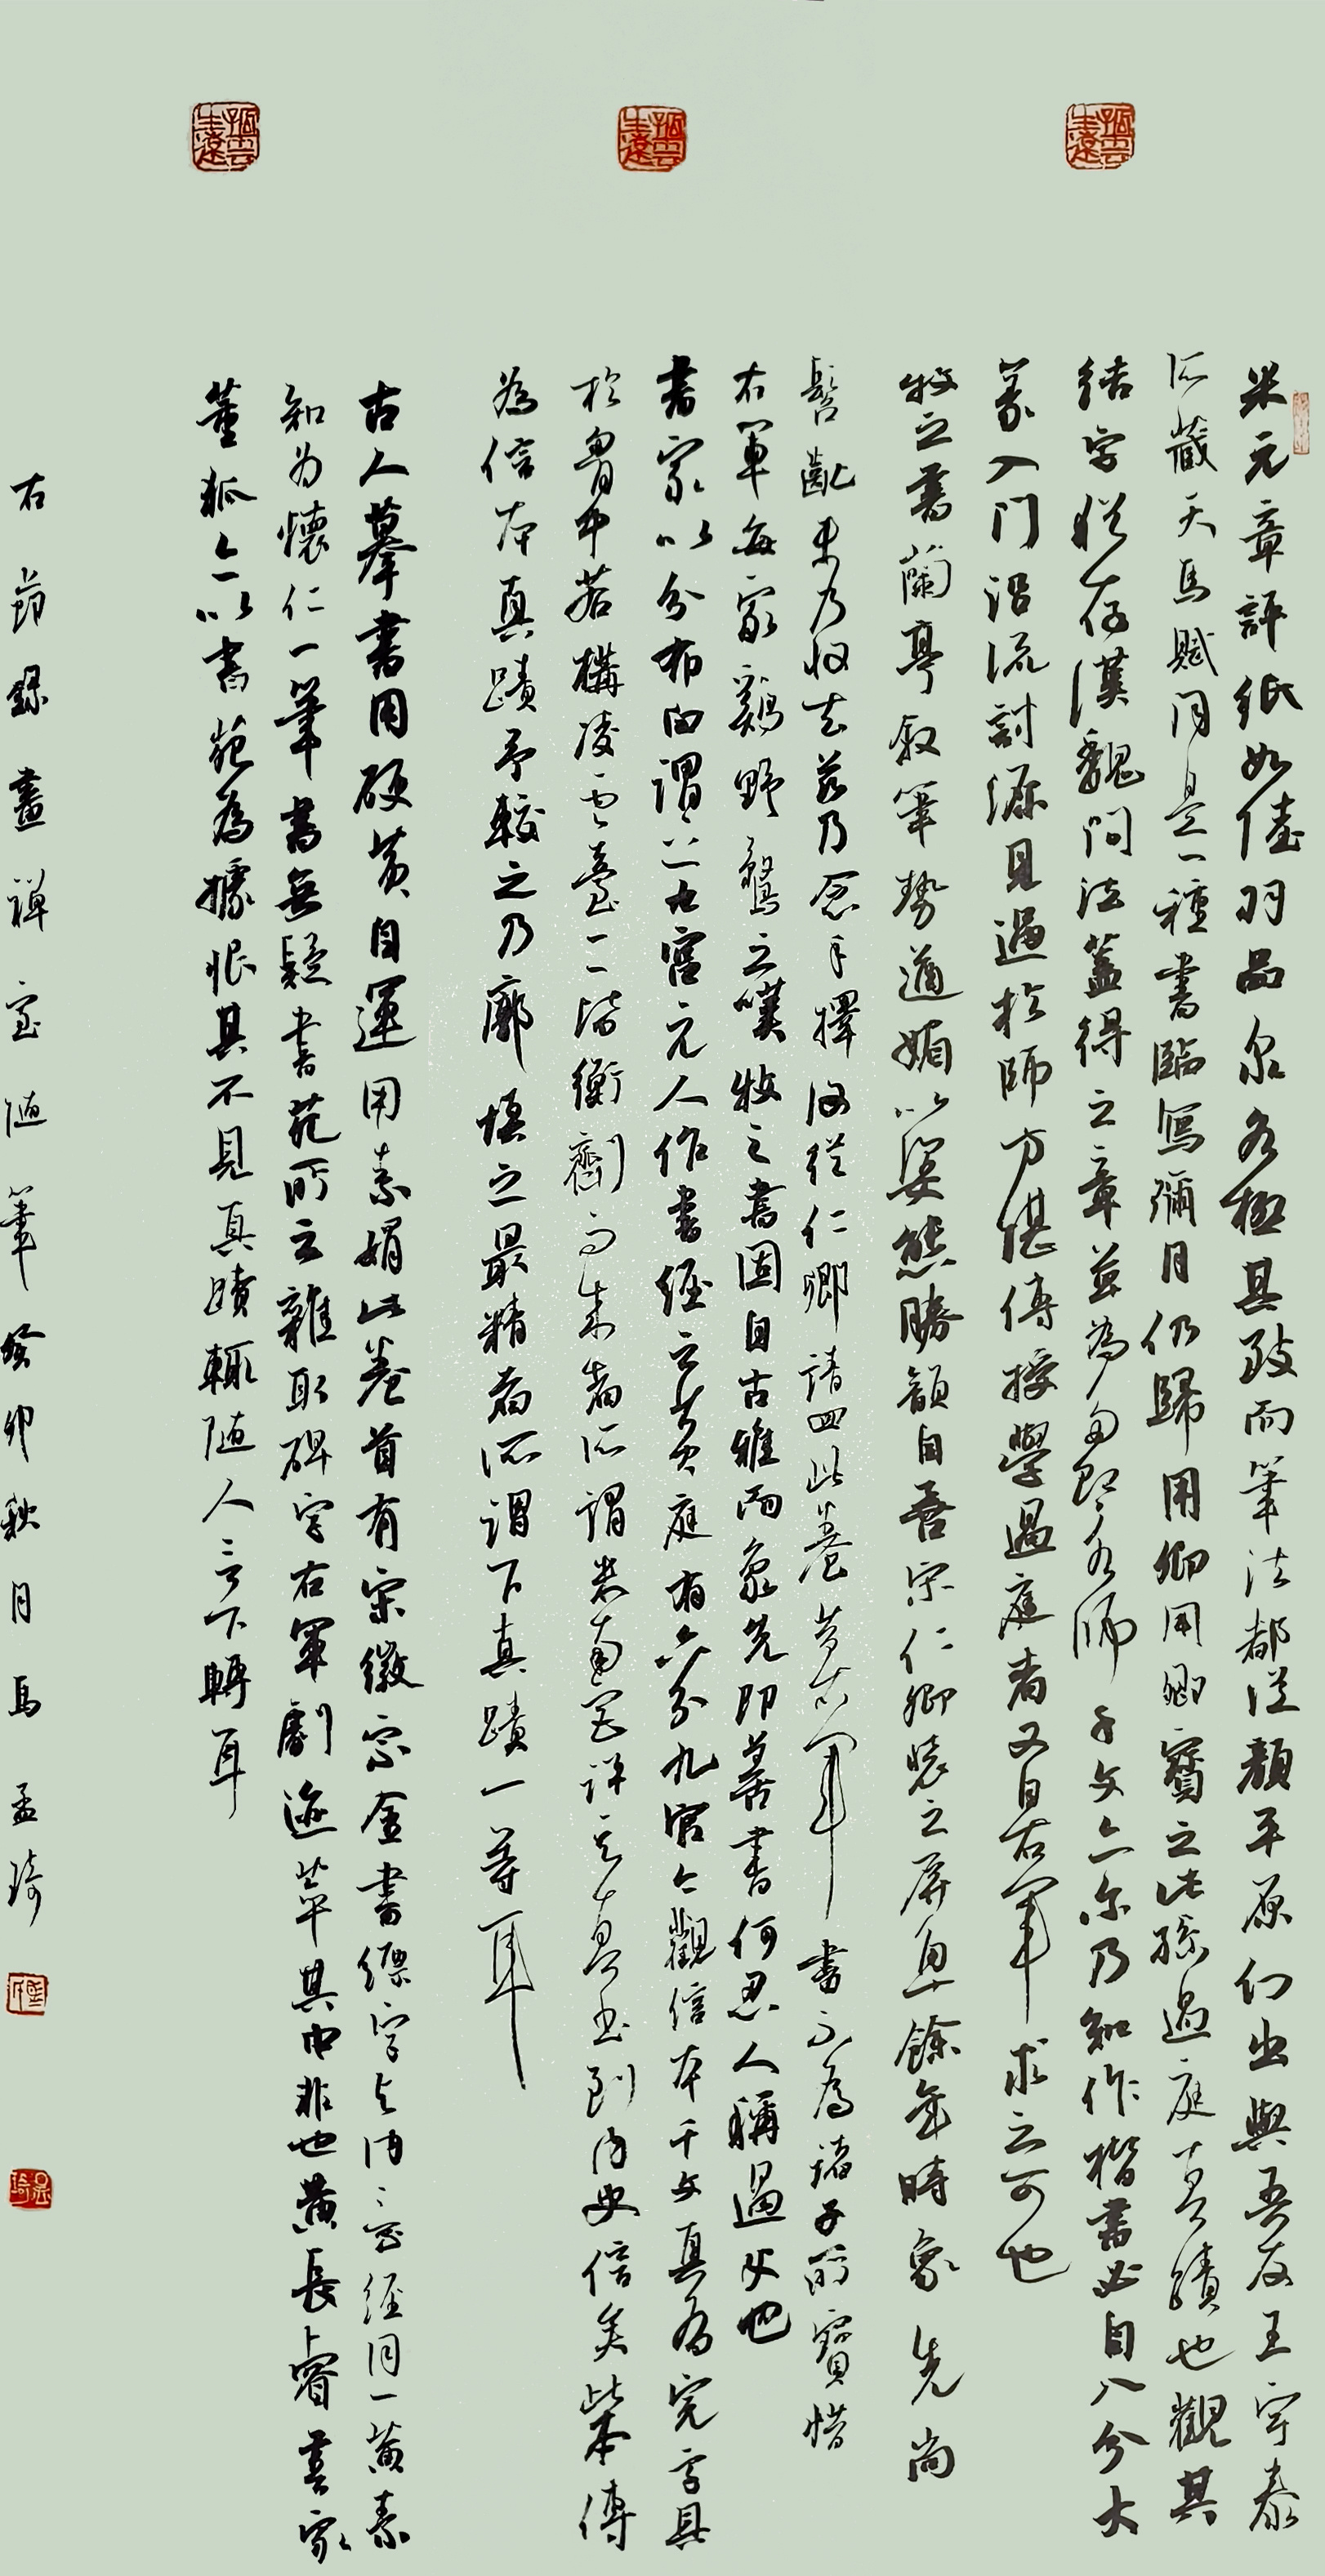 米元章評紙如陸羽品泉各極其致而筆法都從顏平原幻出與吾友王宇泰
所藏天馬賦同是一種書臨寫彌月仍歸用卿用卿寶之此孫過庭真蹟也觀其
結字猶存漢魏間法蓋得之章草為多即永師千文亦尔乃知作楷書必自八分大
篆入門沿流討源見過於師方堪傳授學過庭者又自右軍求之可也
牧之書蘭亭叙筆勢遒媚以姿態勝韻自吾宗仁卿裝之屏風餘年時象先尚
髫齔未乃收去茲乃念手擇復從仁卿請回此卷黃右軍書不為諸子所寶惜
右軍每家鷄野鶩之嘆牧之書固自古雅而象先即善書何忍人稱過父也
書家以分布白謂之九宮元人作書經云黃庭有六分九宮今觀信本千文真為完字具
於胷中若構凌雲臺一一皆衡劑而成者所謂裴南宮評其真書到內史信矣此本傳
為信本真蹟予較之乃廓填之最精者所謂下真蹟一等耳
古人摹書用硬黃自運用素娟此卷首有宋徽宗金書縹字与內景經同一黃素
知为懷仁一筆書無疑書苑所云雜取碑字右軍劇迹萃其中非也黃長睿書家
董狐亦以書苑為據恨其不見真蹟輒隨人言下轉耳
右節錄畫禅室隨筆癸卯秋月馬孟琦